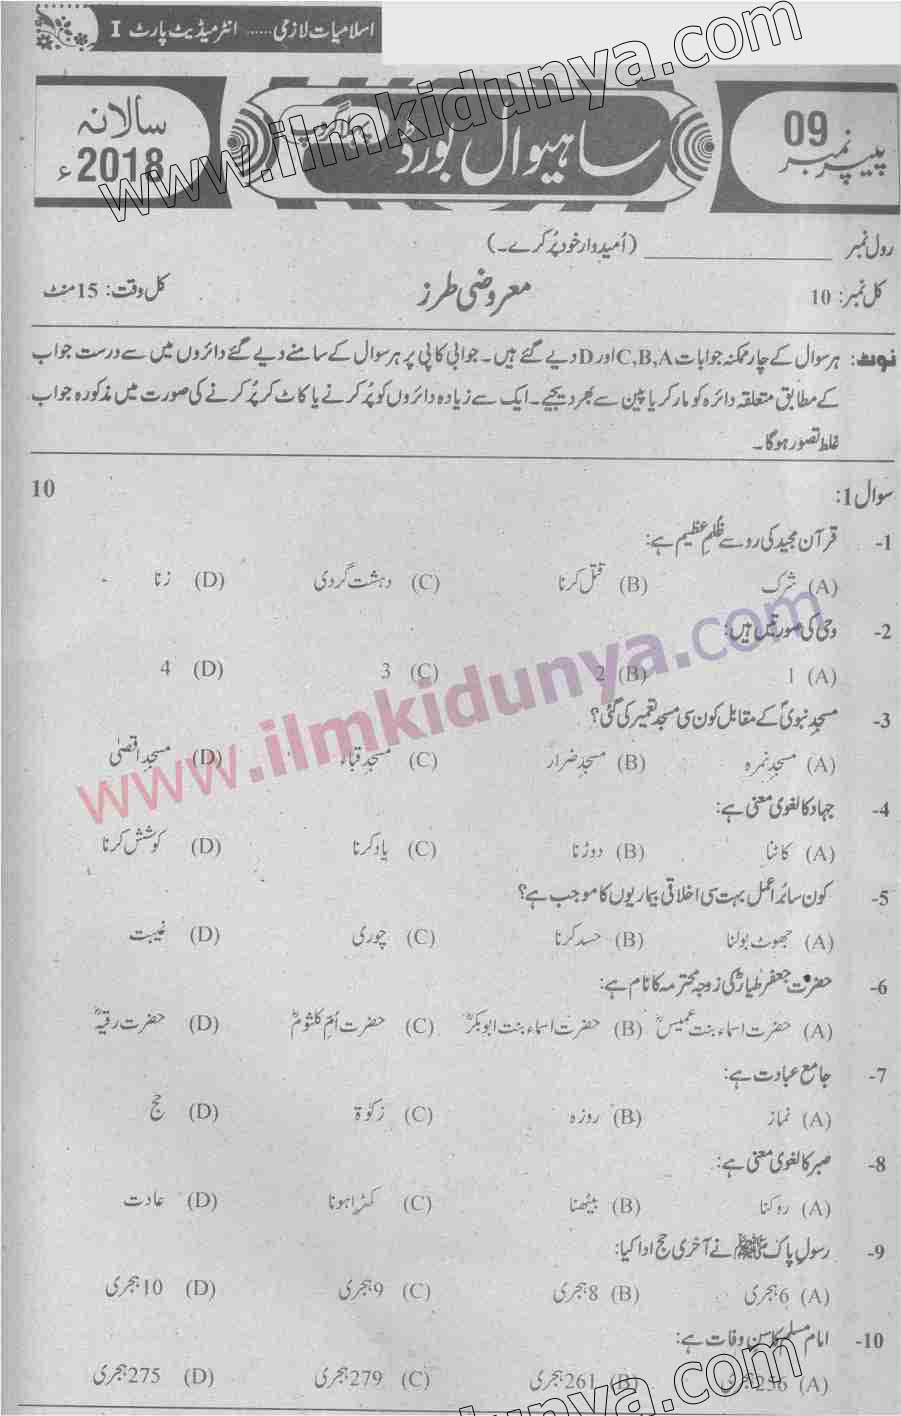 اسلامیات لازمی ...... انٹرمیڈیٹ پارٹ I
www.ilmkidunya.com
پیپر نمبر 09
ساہیوال بورڈ
پہلا گروپ
سالانہ 2018ء
رول نمبر ______________ (اُمیدوار خود پُر کرے۔)
کل نمبر: 10 معروضی طرز کل وقت: 15 منٹ
نوٹ: ہر سوال کے چار ممکنہ جوابات C,B,A اور D دیے گئے ہیں۔ جوابی کاپی پر ہر سوال کے سامنے دیے گئے دائروں میں سے درست جواب
کے مطابق متعلقہ دائرہ کو مارکر یا پین سے بھر دیجیے۔ ایک سے زیادہ دائروں کو پُر کرنے یا کاٹ کر پُر کرنے کی صورت میں مذکورہ جواب
غلط تصور ہوگا۔
سوال 1: 10
1- قرآن مجید کی رو سے ظُلمِ عظیم ہے:
(A) شرک (B) قتل کرنا (C) دہشت گردی (D) زنا
2- وحی کی صورتیں ہیں:
(A) 1 (B) 2 (C) 3 (D) 4
3- مسجدِ نبویؐ کے مقابل کون سی مسجد تعمیر کی گئی؟
(A) مسجدِ نمرہ (B) مسجدِ ضرار (C) مسجدِ قباء (D) مسجدِ اقصیٰ
4- جہاد کا لغوی معنی ہے:
(A) کاٹنا (B) دوڑنا (C) یاد کرنا (D) کوشش کرنا
5- کون سا بُرا عمل بہت سی اخلاقی بیماریوں کا موجب ہے؟
(A) جھوٹ بولنا (B) حسد کرنا (C) چوری (D) غیبت
6- حضرت جعفر طیارؓ کی زوجہ محترمہ کا نام ہے:
(A) حضرت اسماء بنت عمیسؓ (B) حضرت اسماء بنت ابوبکرؓ (C) حضرت اُمِ کلثومؓ (D) حضرت رقیہؓ
7- جامع عبادت ہے:
(A) نماز (B) روزہ (C) زکوٰۃ (D) حج
8- صبر کا لغوی معنی ہے:
(A) روکنا (B) بیٹھنا (C) کھڑا ہونا (D) عادت
9- رسولِ پاک ﷺ نے آخری حج ادا کیا:
(A) 6 ہجری (B) 8 ہجری (C) 9 ہجری (D) 10 ہجری
10- امام مسلم کا سن وفات ہے:
(A) 256 ہجری (B) 261 ہجری (C) 279 ہجری (D) 275 ہجری
www.ilmkidunya.com
www.ilmkidunya.com